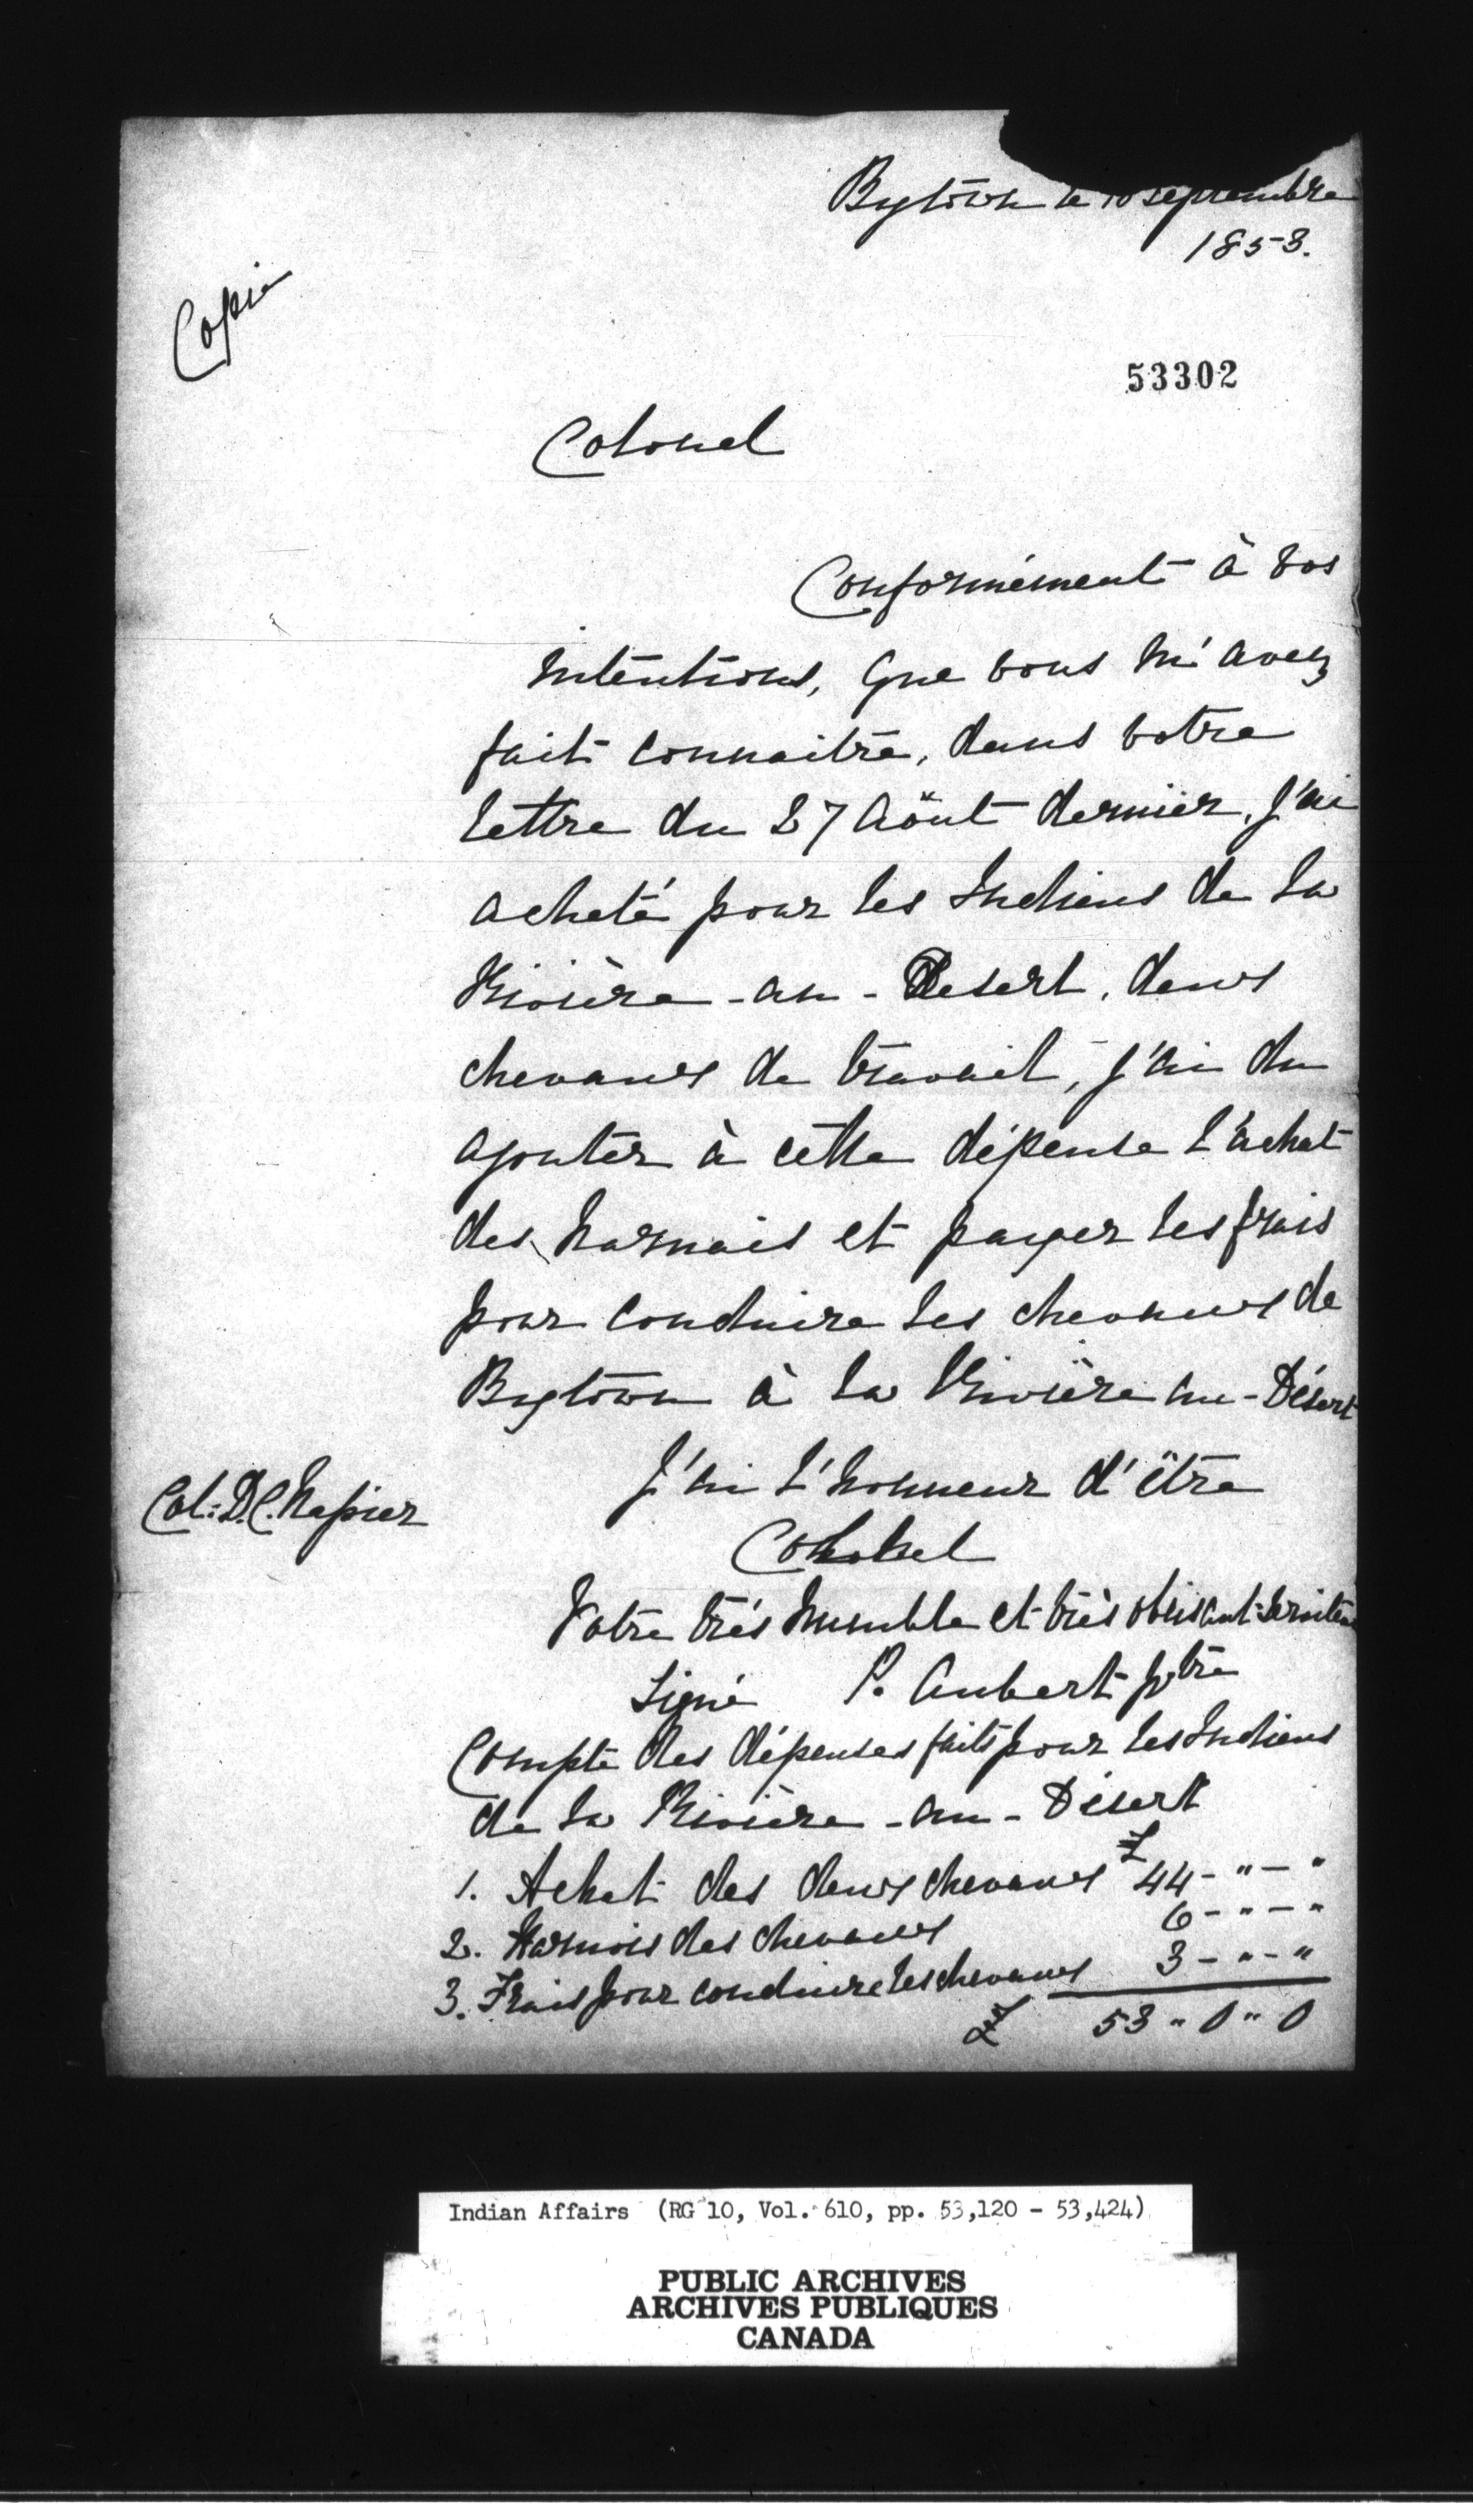 Bytown le 10 Septembre
1853.
Copie
53302
Colonel
Conformément à vos
intentions, que vous m'avez
fait connaitre, dans votre
lettre du 27 Août dernier, j'ai
acheté pour les Indiens de la
Rivière-au-Desert, deux
chevaux de travail, j'ai du
ajouter à cette dépense l'achat
des harnais et payer les frais
pour conduire les chevaux de
Bytown à la Rivière au-Désert
J'ai l'honneur d'être
Colonel
Col: D. C. Napier
Votre très humble et très obéissant Serviteur
Signé P. Aubert ptre
Compte des dépenses faits pour les Indiens
de la Rivière-au-Désert
1. Achat des deux chevaux £ 44 - " - "
2. Harnois des chevaux 6 - " - "
3. Frais pour conduire les chevaux 3 - " - "
£ 53 " 0 " 0
Indian Affairs (RG 10, Vol. 610, pp. 53,120 - 53,424)
PUBLIC ARCHIVES
ARCHIVES PUBLIQUES
CANADA